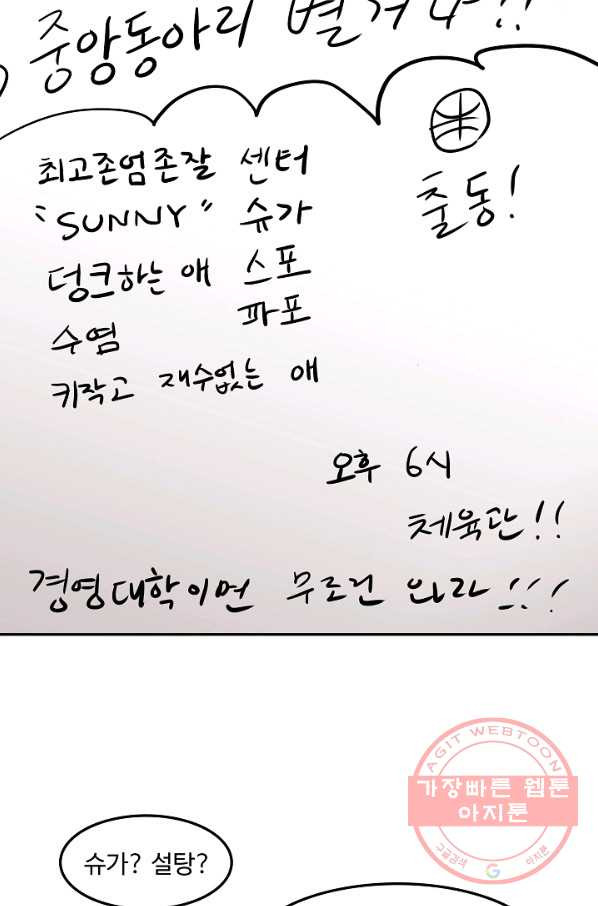 중앙동아리 별거냐!!
최고존엄존잘 센터
"SUNNY" 슈가
덩크하는 애 스포
수염 파포
키작고 재수없는 애
출동!
오후 6시
체육관!!
경영대학이먼 무조건 와라!!!
AGIT WEBTOON
가장빠른 웹툰
아지툰
구글검색 G 아지툰
슈가? 설탕?